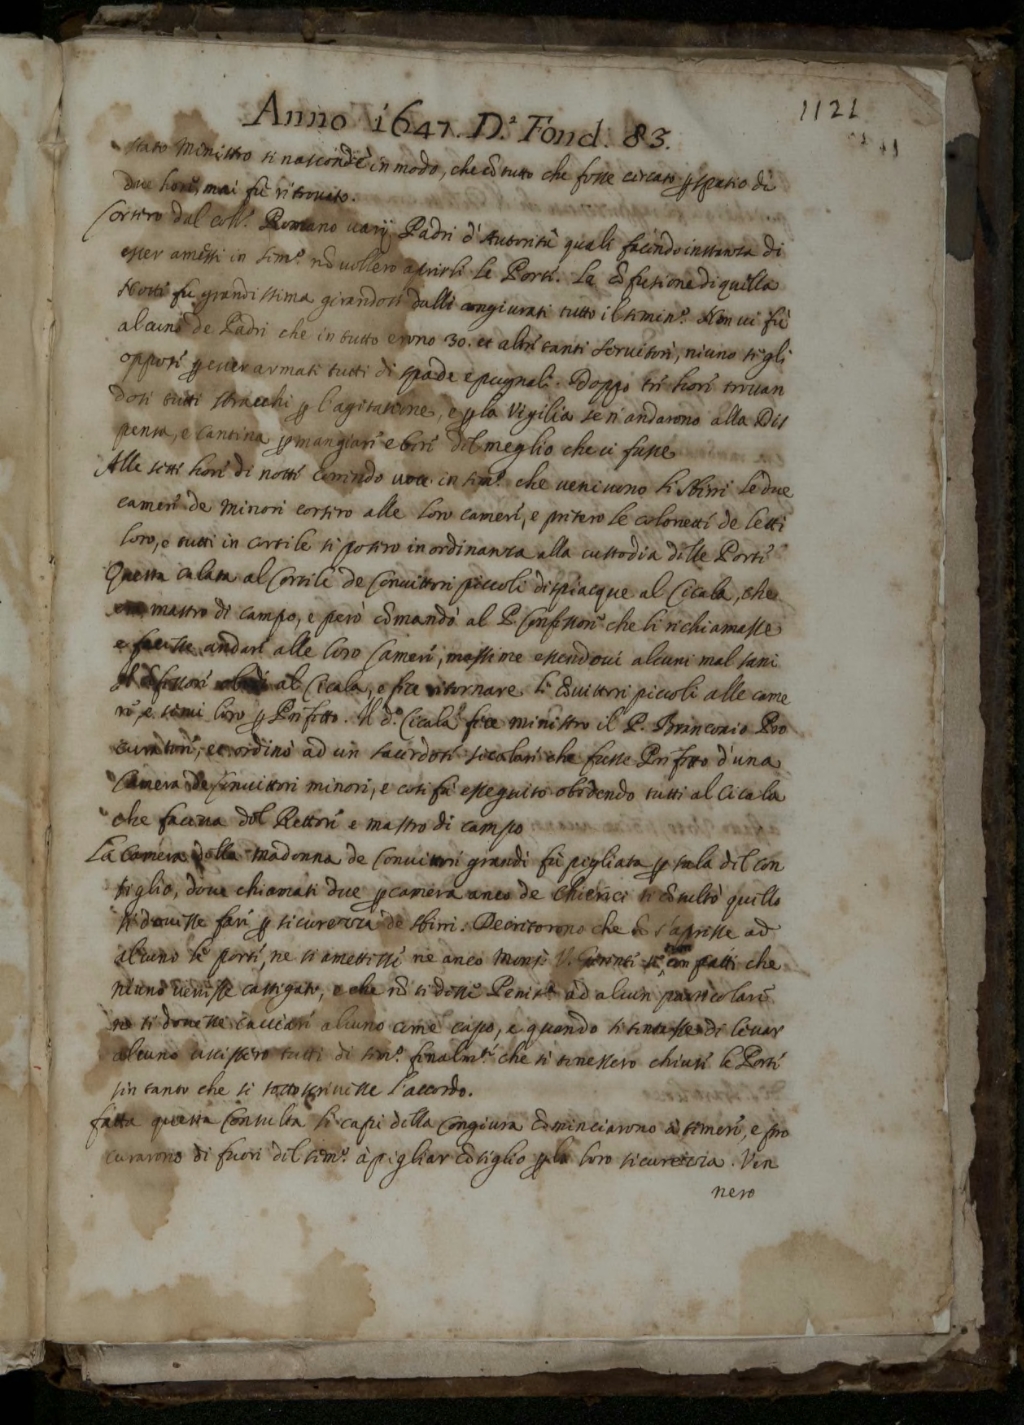 1121
Anno 1647. D.ª Fond. 83.
stato Ministro si nascondè in modo, che cõ tutto che fosse cercato ꝑ spatio di
due hore, mai fù ritrovato.
Corsero dal Coll.º Romano varij Padri d'Autorità quali facendo instanza di
esser amessi in Sem.º nõ vollero aprirli le Porte. La cõfusione di quella
Notte fu grandissima girandosi dalli congiurati tutto il Semin.º Non vi fù
alcuno de Padri che in tutto erono 30. et altri tanti Servitori, niuno si gli
opposè ꝑ esser armati tutti di spade e pugnali. Doppo trè hore trovan
dosi tutti stracchi ꝑ l'agitatione, e ꝑ la Vigilia se n'andarono alla Dis
pensa, e Cantina ꝑ mangiare e bere del meglio che ci fusse.
Alle sette hore di notte correndo voce in Sem.º che venivono li Sbirri le due
camere de Minori corsero alle loro camere, e presero le colonette de letti
loro, e tutti in cortile si posero in ordinanza alla custodia delle Porte
Questa calata al Cortile de Convittori piccoli dispiacque al Cicala, che
era mastro di campo, e però cõmandò al P. Confessore che li richiamasse
e facesse andare alle loro Camere, massime essendovi alcuni mal sani
Il Cõfessore obedì al Cicala, e fece ritornare li Cõvittori piccoli alle came
re, e servì loro ꝑ Prefetto. Il d.º Cicala fece ministro il P. Branconio Pro
curatore, et ordinò ad un sacerdote secolare che fusse Prefetto d'una
Camera de Convittori minori, e così fù esseguito obedendo tutti al Cicala
che faceva del Rettore e mastro di campo
La Camera della Madonna de Convittori grandi fù pegliata ꝑ sala del con
siglio, dove chiamati due ꝑ camera anco de Chierici si cõsultò quello
si dovesse fare ꝑ sicurezza de sbirri. Decretorono che nõ s'aprisse ad
alcuno le porte, ne si amettesse ne anco Mons.r V. con patti che
niuno venisse castigato, e che nõ si desse Penit.ª ad alcun particolare
ne si dovesse cacciare alcuno come capo, e quando si tentasse di levar
alcuno uscissero tutti di Sem.º finalm.te che si tenessero chiuse le Porte
sin tanto che si sottoscrivesse l'accordo.
fatta questa Consulta li capi della Congiura cõminciarono à temere, e pro
curarono di fuori del Sem.º à pigliar cõsiglio ꝑ la loro sicurezza. Ven
nero